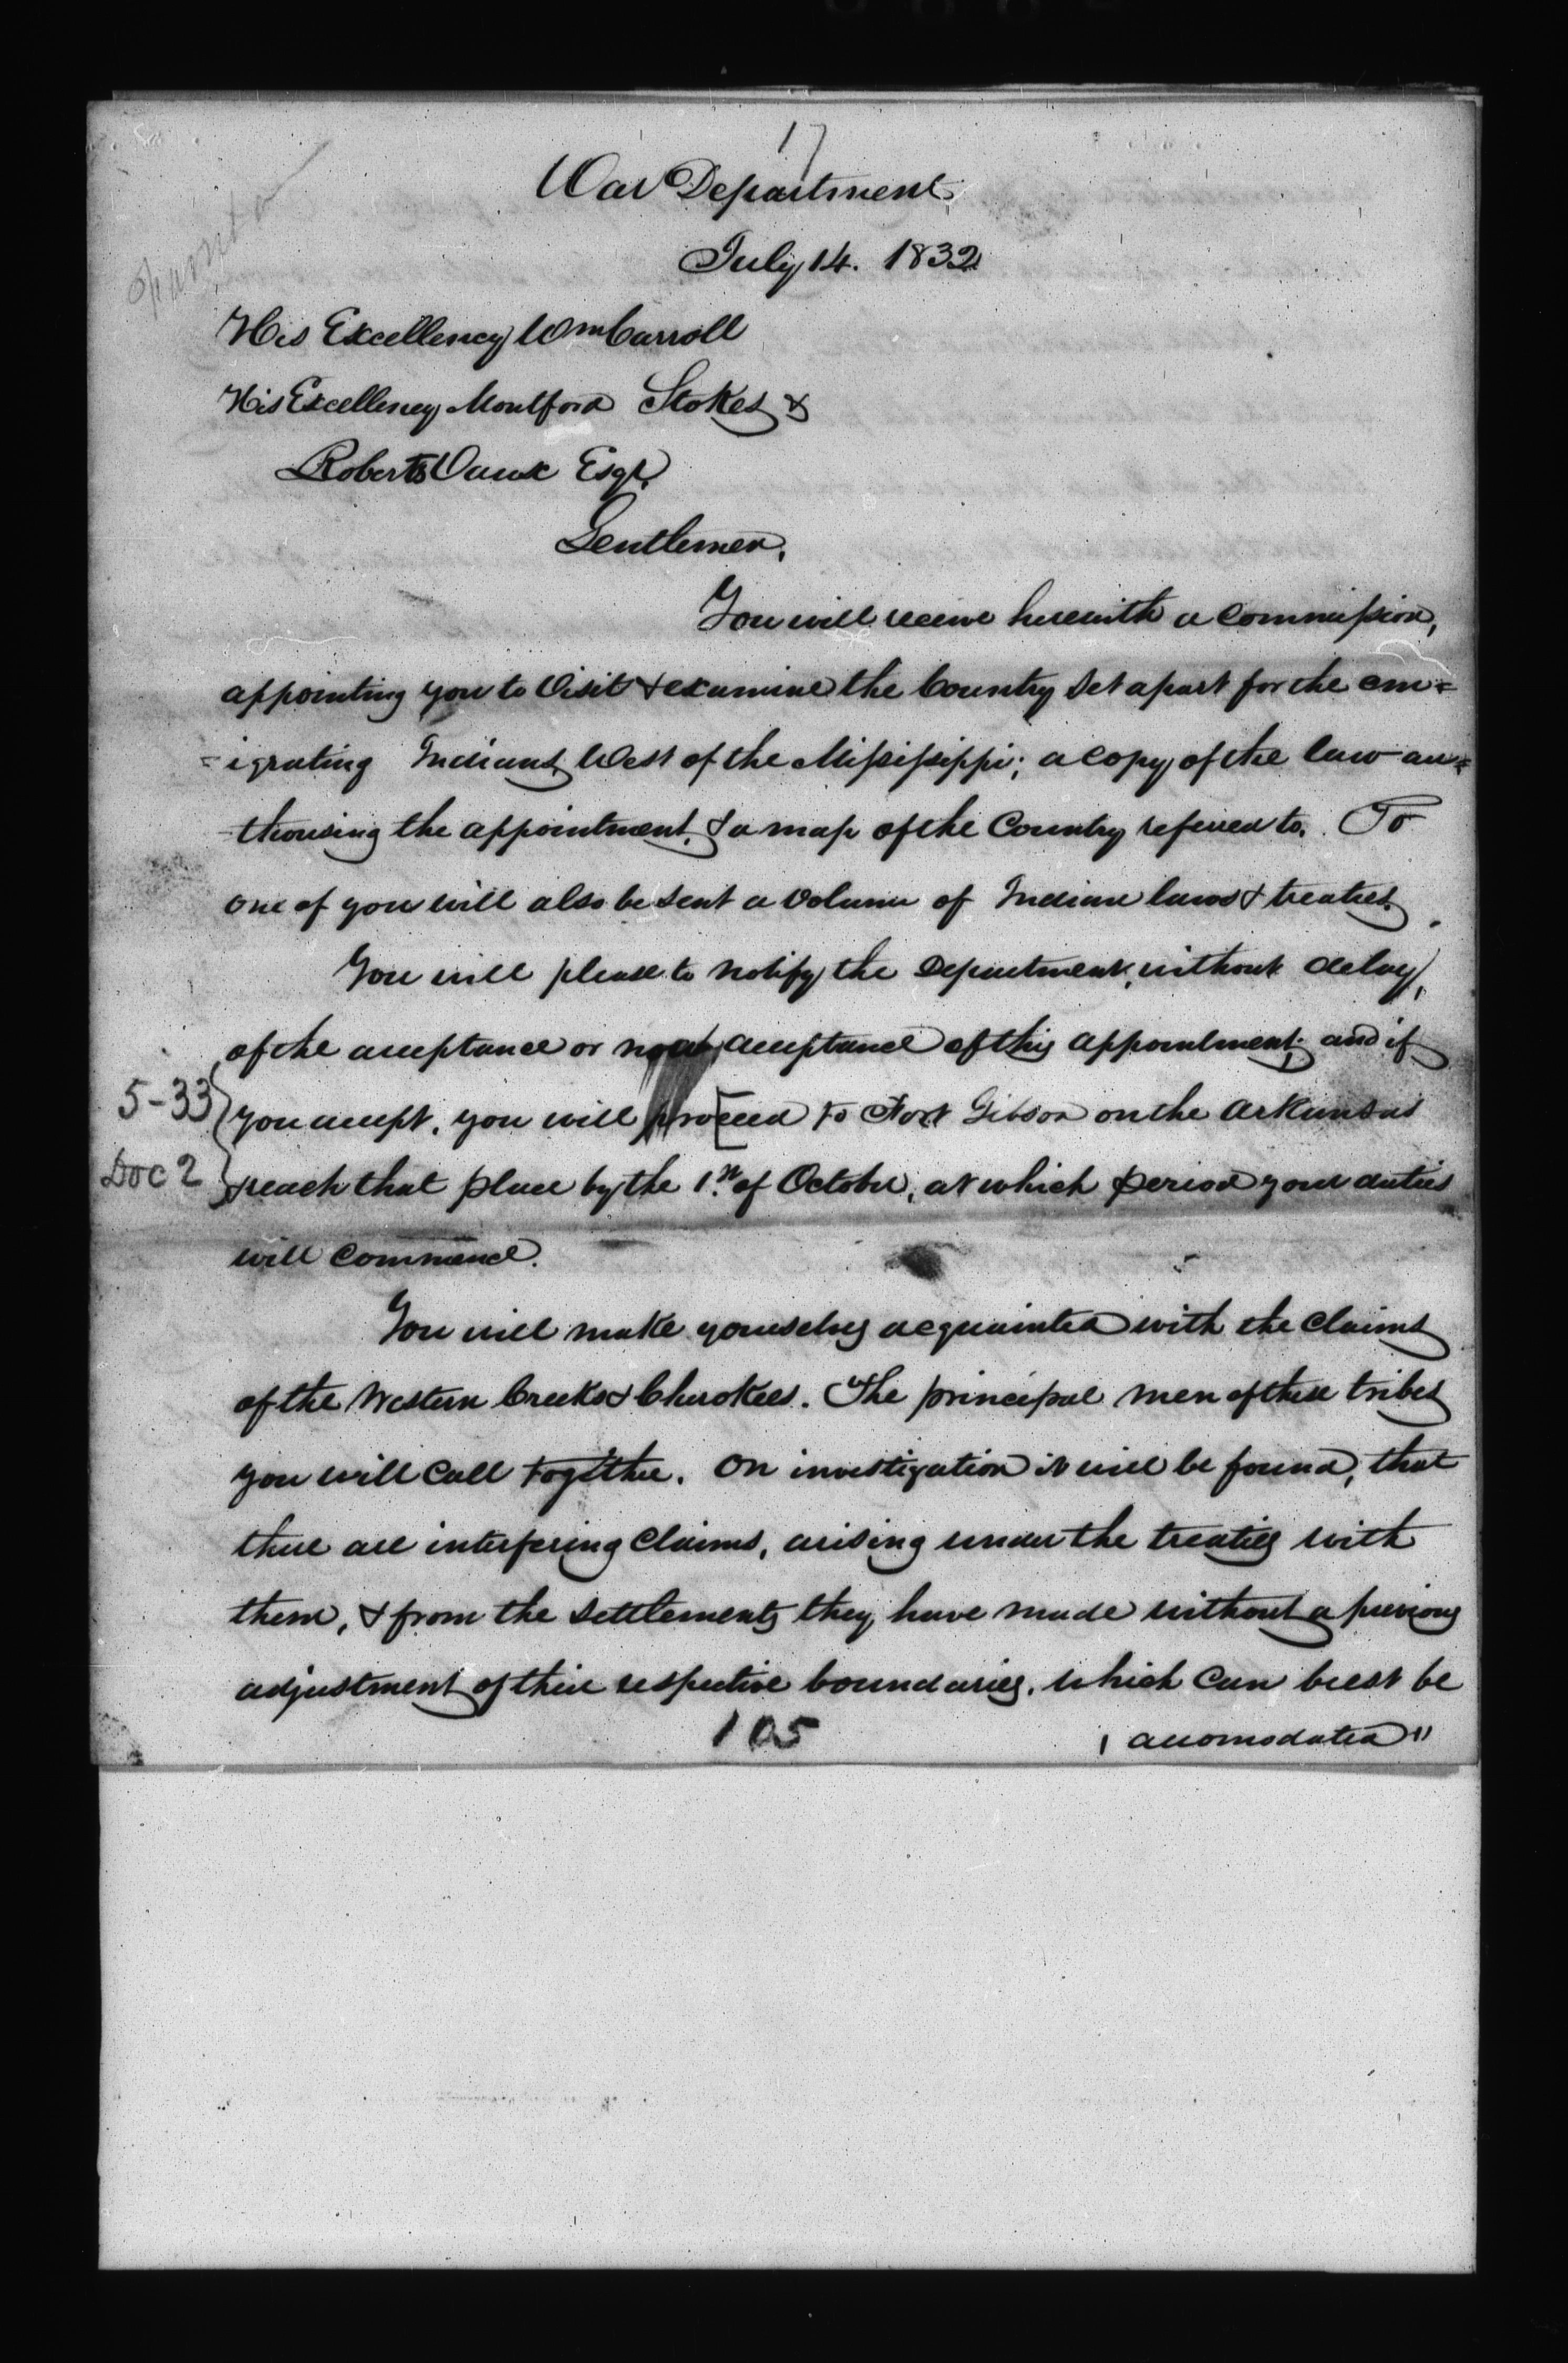 17
War Department
July 14. 1832
His Excellency Wm Carroll
His Excellency Montford Stokes &
Roberts Vaux Esqr.
Gentlemen,
You will receive herewith a Commission,
appointing you to Visit & examine the Country set apart for the em=
=igrating Indians West of the Missisippi; a copy of the law au=
thorising the appointment, & a map of the Country referred to. To
one of you will also be sent a Volume of Indian laws & treaties.
You will please to notify the Department, without delay,
of the acceptance or non acceptance of this appointment; and if
5-33 you accept, you will proceed to Fort Gibson on the Arkansas
Doc 2 & reach that place by the 1st of October, at which period your duties
will commence.
You will make yourselves acquainted with the Claims
of the Western Creeks & Cherokees. The principal men of these tribes
you will Call together. On investigation it will be found, that
there are interfering Claims, arising under the treaties with
them, & from the settlements they have made without a previous
adjustment of their respective boundaries, which Can best be
105
accomodated "